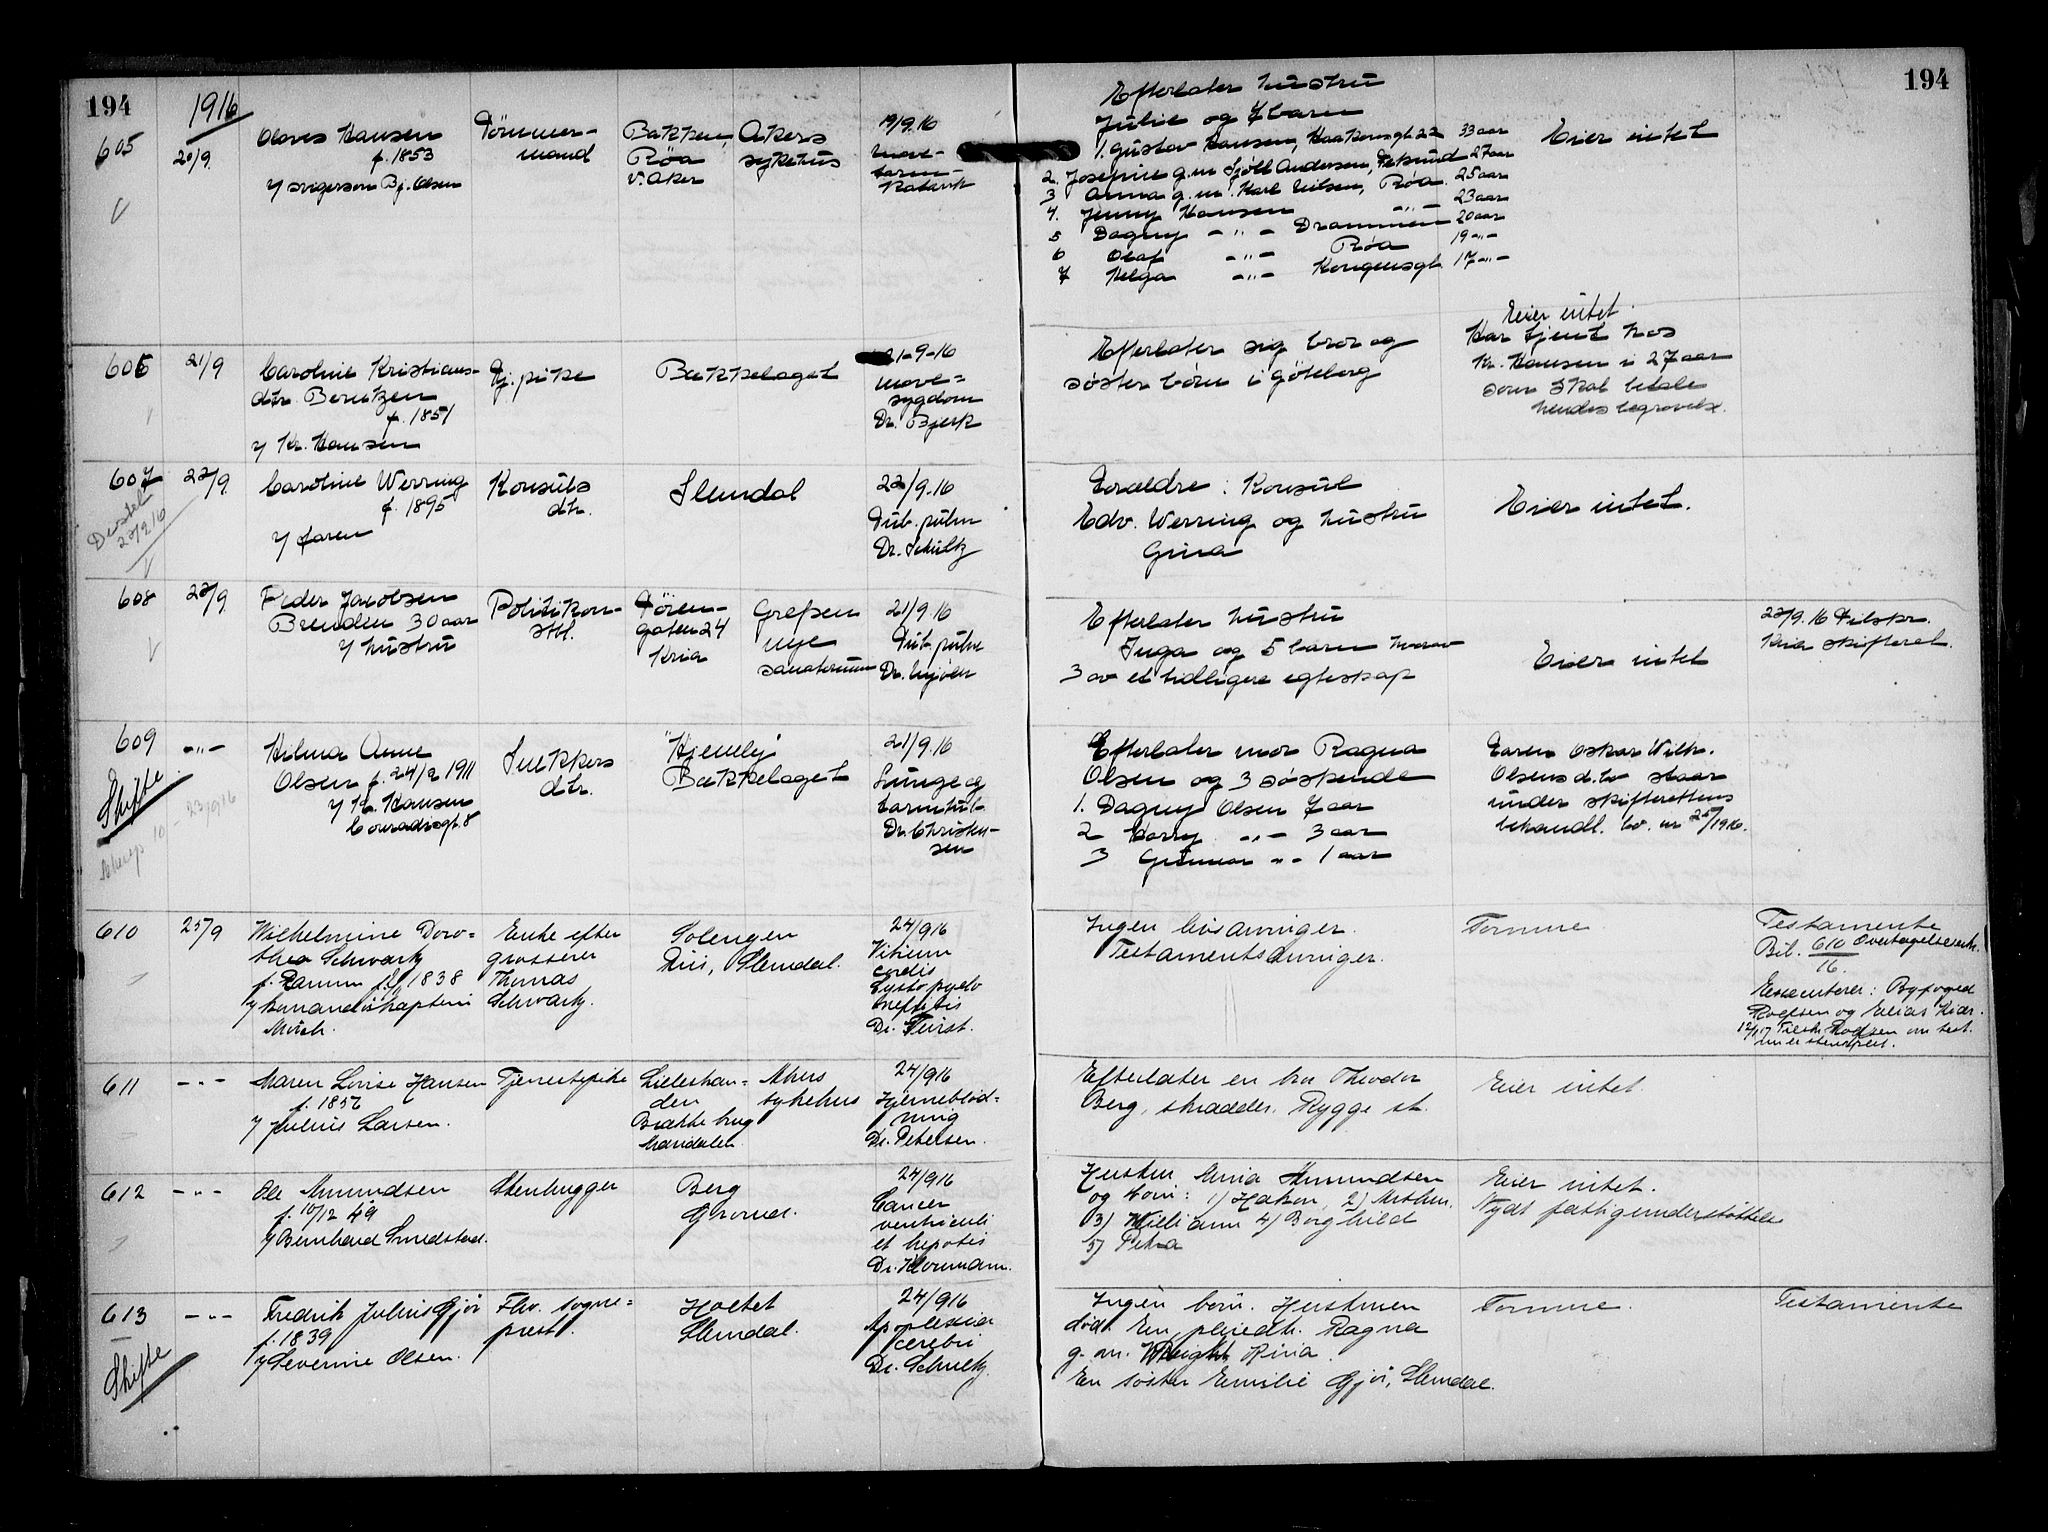 194
1916
605
20/9
Olavs Hansen
f. 1853
v/ svigersøn Bj. Olsen
Tömmer-
mand
Bakken,
Røa
v. Aker
Akers
sykehus
19/9.16
Mave-
tarm-
Katarrh
Efterlater hustru
Julie og 7 barn
1. Gustav Hansen, Haakonsgt 22 33 aar
2. Josefine g.m Andersen, 27 aar
3 Anna g.m. Karl Nilsen, Røa. 25 aar
4. Jenny Hansen -"- 23 aar
5 Dagny -"- Drammen 20 aar
6 Olaf -"- Røa 19 -"-
7 Helga -"- Kongensgt. 17 -"-
Eier intet
194
606
21/9
Caroline Kristians-
dtr. Berntzen
f. 1851
v/ Kr. Hansen
Tj. pike
Bækkelaget
21-9-16
mave=
sygdom
Dr. Bjerk
Efterlater sig bror og
søster börn i Göteborg
Eier intet.
Har tjent hos
Kr. Hansen i 27 aar
som skal betale
hendes begravelse.
607
22/9
Caroline Werring
f. 1895
v/ faren
Konsuls
dtr.
Slemdal
22/9.16
Tub. pulm
Dr. Schultz
Forældre: Konsul
Edv. Werring og hustru
Gina
Eier intet.
608
22/9
Peder Jacobsen
Brenden 30 aar
v/ hustru
Politikon-
stbl.
Tören-
gaten 24
Kria
Grefsen
nye
sanatorium
21/9.16
Tub. pulm
Dr. Mjöen
Efterlater hustru
Inga og 5 barn hvorav
3 av et tidligere egteskap
Eier intet
22/9.16 Tilskr.
Kria skifteret.
609
Skifte
-"-
23/916
Hilma Anne
Olsen f. 24/2 1911
v/ Kr. Hansen
Conradisgt. 8
Snekkers
dtr.
"Hjemlig"
Bækkelaget
21/9.16
Lunge og
tarmtub-
Dr. Christen-
sen
Efterlater mor Ragna
Olsen og 3 søskende
1. Dagny Olsen 7 aar
2 Harry -"- 3 aar
3 Gunnar -"- 1 aar
Faren Oskar Wilh.
Olsens d.bo staar
under skifterettens
behandl. bo. nr 25/1916.
610
25/9
Wilhelmine Doro=
thea Schwartz
f. 1838
Enke efter
grosserer
Thomas
Schwartz.
Solengen
Riis, Slemdal.
24/916
Vitium
cordis
Dr. Fürst.
Ingen livsarvinger.
Testamentsarvinger.
Formue
Testamente
Bil. 610/16
Executorer: Byfoged
Rolfsen og Elias Kiær.
611
-"-
Maren Lovise Hansen
v/ Julius Larsen.
Tjenestepike
den
Mandalen.
Akers
sykehus
24/916
Hjerneblöd=
ning
Dr. Petersen.
Efterlater en bror Theodor
Berg, skrædder. Rygge st.
Eier intet.
612
-"-
Ole Amundsen
f. 10/12 49
v/ Bernhard Smedstad.
Stenhugger
Berg
Grorud.
24/916
Cancer
ventriculi
et hepatis
Hustru Amundsen
og börn: 1) Hakon, 2) Arthur.
3) William 4) Borghild
5) Petra
Eier intet.
Nydt fattigunderstöttelse
613
Skifte
-"-
Fredrik Julius Gjör
f. 1839
v/ Severine Olsen.
Fhv. sogne=
prest.
Holtet
Slemdal.
24/916
Apoplexia
cerebri
Dr. Schultz
Ingen börn. Hustruen
död. En pleiedtr. Ragna
g.m. Wright Kria.
En söster Emilie Gjör, Slemdal.
Formue.
Testamente